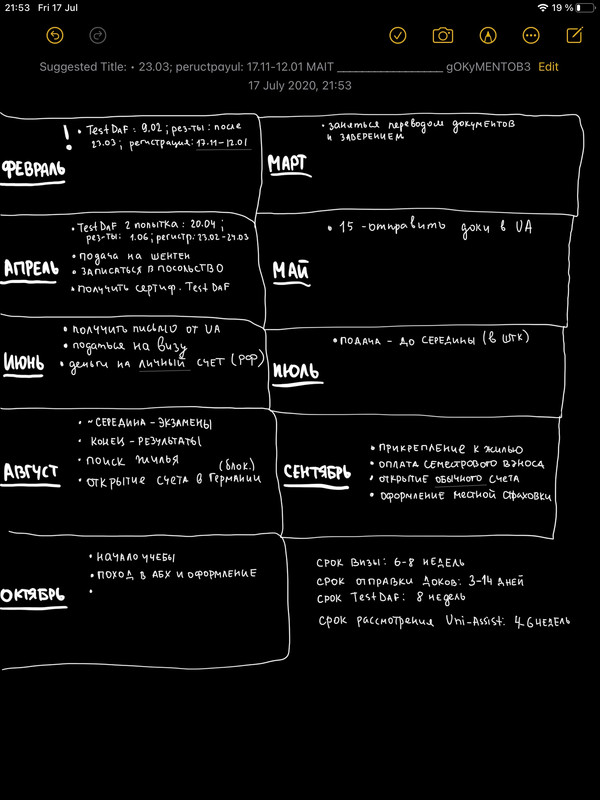 21:53 Fri 17 Jul
19 %
Suggested Title: • 23.03; peructpayul: 17.11-12.01 MAIT ____________________ gOKyMENTOB3 Edit
17 July 2020, 21:53
ФЕВРАЛЬ
! • TestDaF: 9.02; рез-ты: после
23.03; регистрация: 17.11-12.01
МАРТ
• заняться переводом документов
и заверением
АПРЕЛЬ
• TestDaF 2 попытка: 20.04;
рез-ты: 1.06; регистр: 23.02-24.03
• подача на шенген
• записаться в посольство
• получить сертиф. TestDaF
МАЙ
• 15 - отправить доки в UA
ИЮНЬ
• получить письмо от UA
• податься на визу
• деньги на личный счет (РФ)
ИЮЛЬ
• подача - до середины (в штк)
АВГУСТ
• ~середина - экзамены
• конец - результаты
• поиск жилья
• открытие счета в Германии (блок.)
СЕНТЯБРЬ
• прикрепление к жилью
• оплата семестрового взноса
• открытие обычного счета
• оформление местной страховки
ОКТЯБРЬ
• начало учебы
• поход в АБХ и оформление
•
срок визы: 6-8 недель
срок отправки доков: 3-14 дней
срок TestDaF: 8 недель
срок рассмотрения Uni-Assist: 4-6 недель